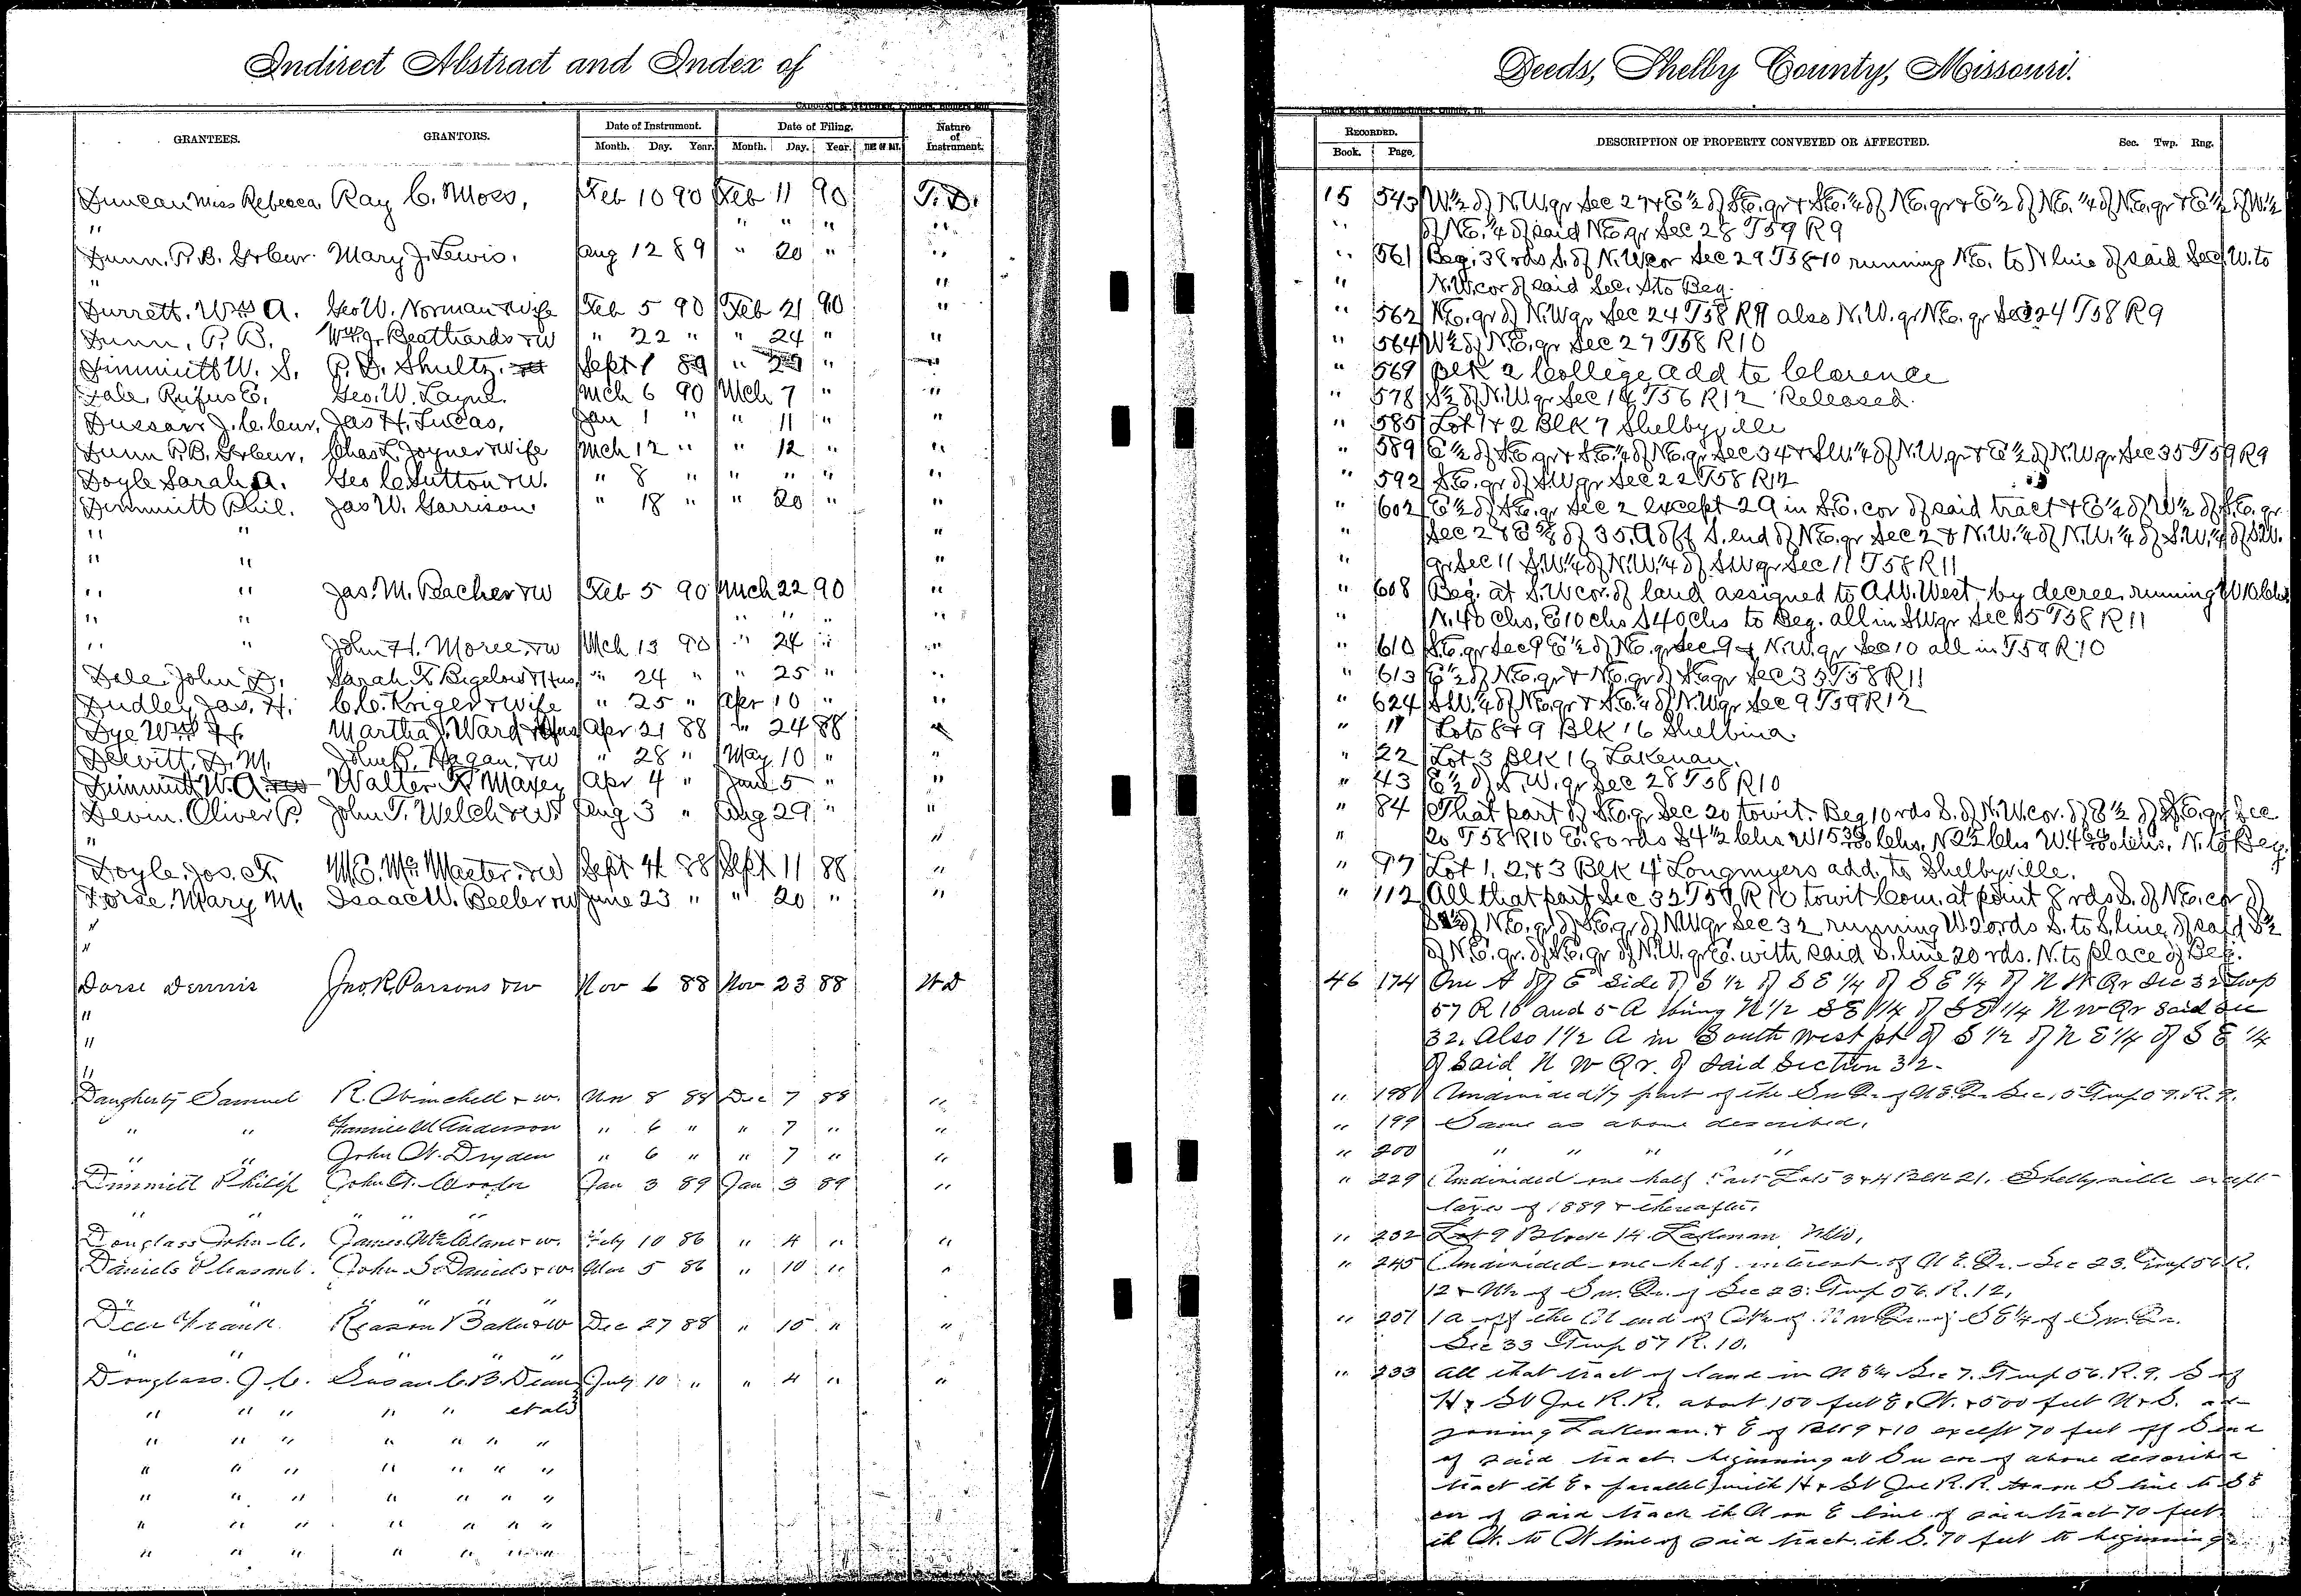 Indirect Abstract and Index of
Deeds, Shelby County, Missouri.
GRANTEES. GRANTORS. Date of Instrument. Month. Day. Year. Date of Filing. Month. Day. Year. Nature of Instrument.
RECORDED. Book. Page. DESCRIPTION OF PROPERTY CONVEYED OR AFFECTED. Sec. Twp. Rng.
Duncan Miss Rebecca Ray C. Moss, Feb 10 90 Feb 11 90 T. D. 15 543 W½ of N.W.qr Sec 27 & E½ of S.E.qr & S.E.¼ of N.E.qr & E½ of N.E.¼ of N.E.qr & E½ of W½
" " " " " " of N.E.¼ of said N.E.qr Sec 28 T59 R9
Dunn, P.B. Mary J. Lewis. Aug 12 89 " 20 " " 561 Beg. 38 rds S. of N.W.cor Sec 29 T58-10 running N.E. to N line of said Sec, W. to
" " " N.W.cor of said Sec. S. to Beg.
Durrett, Wm A. Geo W. Norman & Wife Feb 5 90 Feb 21 90 " " 562 N.E.qr of N.W.qr Sec 24 T58 R9 also N.W.qr N.E.qr Sec 24 T58 R9
Dunn, P. B. Beathards & W " 22 " " 24 " " " 564 W½ of N.E.qr Sec 27 T58 R10
Dimmitt W. S. P. D. Shultz Sept 1 89 " " " 569 Blk 2 College Add to Clarence
Dale, Rufus E. Geo. W. Layne. Mch 6 90 Mch 7 " " " 578 S½ of N.W.qr Sec 14 T56 R12 Released.
J. C. Jas H. Lucas, Jan 1 " " 11 " " " 585 Lot 1 & 2 Blk 7 Shelbyville
Dunn P.B. Chas L. Joyner & Wife Mch 12 " " 12 " " " 589 E½ of S.E.qr & S.E.¼ of N.E.qr Sec 34 & S.W.¼ of N.W.qr & E½ of N.W.qr Sec 35 T59 R9
Doyle Sarah A. Geo C. Sutton & W. " 8 " " " " " " 592 S.E.qr of S.W.qr Sec 22 T58 R12
Dimmitt Phil. Jas W. Garrison " 18 " " 20 " " " 602 E½ of S.E.qr Sec 2 except 2A in S.E. cor of said tract & E½ of W½ of S.E.qr
" " " " Sec 2 & E⅝ of 35.A off S. end of N.E.qr Sec 2 & N.W.¼ of N.W.¼ of S.W.¼ of S.W.
" " " " qr Sec 11 S.W.¼ of N.W.¼ of S.W.qr Sec 11 T58 R11
" " Jas. M. Peacher & W Feb 5 90 Mch 22 90 " " 608 Beg. at S.W.cor. of land assigned to A.W. West by decree running
" " " " " " N. 40 chs, E 10 chs S 40 chs to Beg. all in S.W.qr Sec T58 R11
" " John H. Moree & W Mch 13 90 " 24 " " " 610 S.E.qr Sec 9 E½ of N.E.qr Sec 9 & N.W.qr Sec 10 all in T59 R10
Dale, John D. Sarah F. Bigelow & Hus " 24 " " 25 " " " 613 E½ of N.E.qr & N.E.qr of S.E.qr Sec 35 T58 R11
Dudley Jas. H. C.C. Kriger & Wife " 25 " Apr 10 " " " 624 S.W.¼ of N.E.qr & S.E.¼ of N.W.qr Sec 9 T59 R12
Dye Wm H. Martha J. Ward & Hus Apr 21 88 " 24 88 " " 11 Lots 8 & 9 Blk 16 Shelbina
Dewitt, D. M. John R. Hagan & W " 28 " May 10 " " " 22 Lot 3 Blk 16 Lakenan.
Dimmitt W. A. Walter R. Maxey Apr 4 " June 5 " " " 43 E½ of S.W.qr Sec 28 T58 R10
Devin, Oliver P. John T. Welch & W. Aug 3 " Aug 29 " " " 84 That part of S.E.qr Sec 20 towit. Beg 10 rds S. of N.W.cor. of E½ of S.E.qr Sec
" " " 20 T58 R10 E. 80 rds S 4½ Chs W 15 Chs. N 2½ Chs W. 4 Chs. N. to Beg.
Doyle, Jos. F. M.E. McMaster & W Sept 4 88 Sept 11 88 " " 97 Lot 1, 2, & 3 Blk 4 Longmyers add. to Shelbyville.
Dorse, Mary M. Isaac W. Beeler & W June 23 " " 20 " " " 112 All that part Sec 32 T57 R10 towit Com. at point 8 rds S. of N.E. cor of
" S½ of N.E.qr of S.E.qr of N.W.qr Sec 32 running W. 20 rds S. to S. line of said S½
" of N.E.qr. of S.E.qr of N.W.qr E. with said S. line 20 rds. N. to place of Beg.
Dorse Dennis Jno. R. Parsons & W Nov 6 88 Nov 23 88 W D 46 174 One A off E side of S ½ of S E ¼ of S E ¼ of N W Qr Sec 32 Twp
" 57 R 10 and 5 A being N ½ S E ¼ of S E ¼ N W Qr said Sec
" 32. Also 1½ A in South west pt of S ½ of N E ¼ of S E ¼
" of Said N W Qr. of Said Section 32.
Daugherty Samuel R. Winchell & w. Nov 8 88 Dec 7 88 " " 198 Undivided 1/7 part of the Sw Qr of N E. Qr Sec. 5 Twp 57. R. 9.
" " Fannie M Anderson " 6 " " 7 " " " 199 Same as above described.
" " John W. Dryden " 6 " " 7 " " " 200 " " " "
Dimmitt Philip John T. Cooper Jan 3 89 Jan 3 89 " " 229 Undivided one half Part Lots 3 & 4 Blk 21. Shelbyville except
" " " " " taxes of 1889 & thereafter.
Douglass John C. James McClane & w. July 10 86 " 4 " " " 232 Lot 9 Block 14. Lakenan Mo.
Daniels Pleasant. John S. Daniels & w Mar 5 86 " 10 " " " 245 Undivided one half interest of N E. Qr. Sec 23. Twp 56 R.
" " " " " 12 & W½ of Sw. Qr. of Sec 23. Twp 56. R. 12.
Deer Frank Reason Baker & W Dec 27 88 " 15 " " " 251 1 a off the N end of W½ of N w Qr. of S E ¼ of Sw. Qr.
" " " " " Sec 33 Twp 57 R. 10.
Douglass. J. C. Susan C. B. Dean July 10 " " 4 " " " 233 All that tract of land in N E¼ Sec 7. Twp 56. R. 9. S of
" " " " " et als H & St Joe R.R. about 150 feet E. W. & 500 feet N & S. ad-
" " " " " " " joining Lakenan. & E of Blk 9 & 10 except 70 feet off S end
" " " " " " " of said tract beginning at Sw cor of above described
" " " " " " " tract th E. parallel with H & St Joe R.R. S line to S E
" " " " " " " cor of said tract th N on E line of said tract 70 feet
" " " " " th W. to W line of said tract. th S. 70 feet to beginning